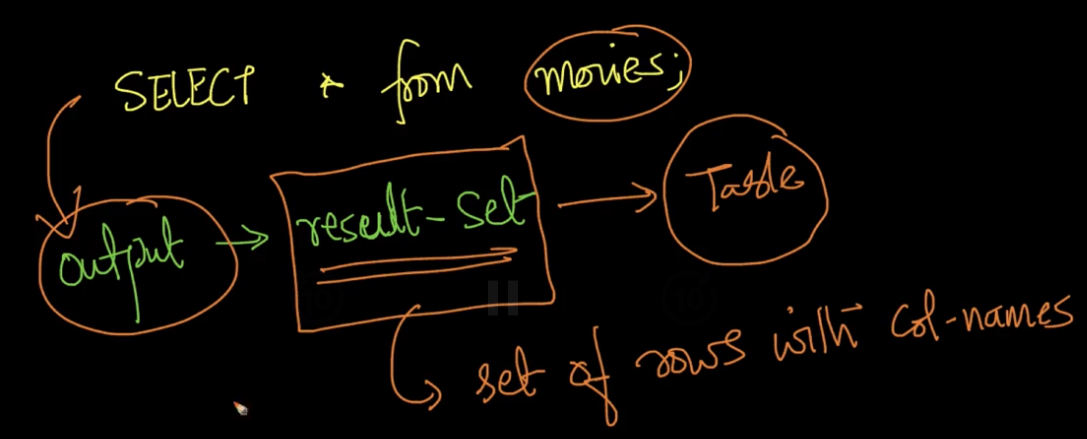 SELECT * from movies;
output → result-set → Table
set of rows with col-names